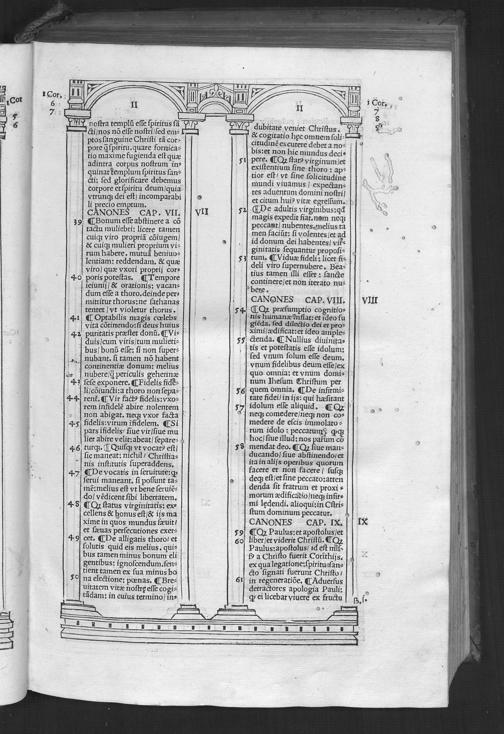 1 Cor.
6
7
II
nostra templū esse spiritus sā
cti; nos nō esse nostri; sed em
ptos sanguine Christi
corpore & spiritu. quare fornica
tio maxime fugienda est quæ
adintra corpus nostrum in
quinat templum spiritus san
cti; sed glorificare debemus
corpore et spiritu deum; quia
utrunqȝ dei est; incomparabi
li precio emptum.
CANONES CAP. VII. VII
39 ¶Bonum esse abstinere a cō
tactu muliebri; licere tamen
cuiqȝ viro propriā cōiugem;
& cuiqȝ mulieri proprium vi
rum habere. mutuā beniuo
lentiam; reddendam, & quæ
viro; quæ vxori proprij cor
40 poris potestas. ¶Tempore
ieiunij & orationis; vacan
dum esse a thoro. deinde per
mittitur thorus; ne sathanas
tentet; vt violetur thorus.
41 ¶Optabilis magis cœlebs
vita cōtinendo; est deus huius
42 puritatis præstet donū. ¶Vi
duis; cum viris; tum mulieri
bus; bonū esse; si non super
nubant. si tamen nō habent
continentiæ donum; melius
nubere; periculis gehennæ
43 sese exponere. ¶Fidelis fide
li; cōiuncti; a thoro non sepa
44 rent. ¶Vir factus fidelis; vxo
rem infidelē abire nolentem
non abigat. neqȝ vxor facta
45 fidelis; virum infidelem. ¶Si
pars infidelis; siue vir; siue mu
lier abire velit; abeat; sepæ
46 turqȝ. ¶Quisqȝ vt vocatus est;
sic maneat; nichil Christia
nis institutis superaddens.
47 ¶De vocatis in seruitute;
serui maneant. si possunt ta
mē; melius est vt bene seruiē
do; vēdicent sibi libertatem.
48 ¶Quod status virginitatis; ex
cellens & bonus est; & ijs ma
xime in quos mundus sæuiit
et sæuas persecutiones exer
49 cet. ¶De alligatis thoro; et
solutis quid eis melius. qui
bus tamen minus bonum eli
gentibus; ignoscendum. sen
tient tamen ex sua minus bo
50 na electione; pœnas. ¶Bre
uitatem vitæ nostræ esse cogi
tādam; in cuius termino; in
II
1 Cor.
7
8
9
dubitate veniet Christus.
& cogitatio hæc omnem soli
citudinē excutere debet a no
bis; et non hic mundus deci
51 pere. ¶Quod status virginum; et
existentium sine thoro; ap
tior est; vt sine solicitudine
mundi viuamus; expectan
tes aduentum domini nostri
et citum huius vitæ egressum.
52 ¶De adultis virginibus; quod
magis expedit fiat. non neqȝ
peccant; nubentes. melius ta
men faciunt; si volentes; et ad
id donum dei habentes; vir
ginitatis sequantur proposi
53 tum. ¶Viduæ fideli; licet fi
deli viro supernubere. Bea
tius tamen illi esset; sancte
continere; et non iterato nu
bere.
CANONES CAP. VIII. VIII
54 ¶Quod præsumptio cognitio
nis humanæ; inflat; et ideo fu
giēda. sed dilectio dei et pro
ximi; ædificat; et ideo ample
55 ctenda. ¶Nullius diuinita
tis et potestatis esse idolum;
sed vnum solum esse deum.
vnum fidelibus deum esse; ex
quo omnia; et vnum domi
num Ihesum Christum per
56 quem omnia. ¶De infirmi
tate fidei; in ijs; qui hæsitant
57 idolum esse aliquid. ¶Quod
neqȝ comedere; neqȝ non co
medere de escis immolato
rum idolo; peccatum
hoc; siue illud; nos parum cō
58 mendat deo. ¶Quod siue man
ducando; siue abstinendo; et
ita in alijs operibus quorum
facere et non facere; suscę
deqȝ est; et sine peccato; atten
denda sit fratrum et proxi
morum ædificatio; neqȝ infir
mi lędendi. alioqui; in Chri
stum dominum peccatur.
CANONES CAP. IX. IX
59 ¶Quod Paulus; et apostolus; et
60 liber; et viderit Christū. ¶Quod
Paulus; apostolus; id est mis
sus a Christo fuerit Corinthijs.
ex qua legatione; spiritu san
cto signati fuerunt Christo
61 in regeneratiōe. ¶Aduersus
detractores apologia Pauli;
quod ei licebat viuere ex fructu
B.j.